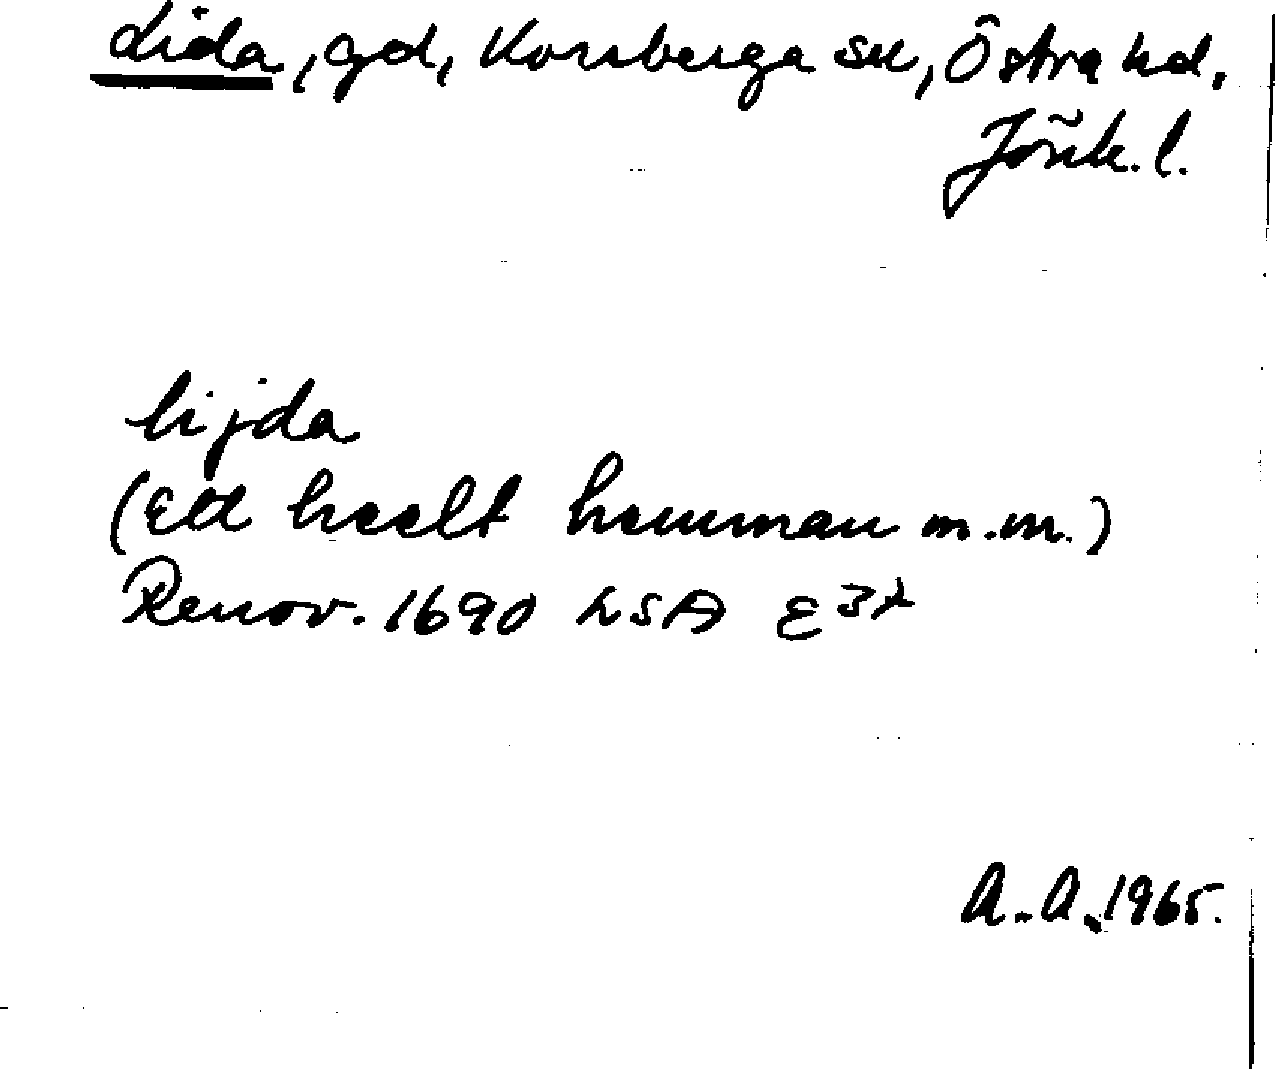 Lida, gd, Korsberga sn, Östra hd,
Jönk. l.
lijda
(Ett heelt hemman m.m.)
Renov. 1690 LSA E 32
A.A. 1965.